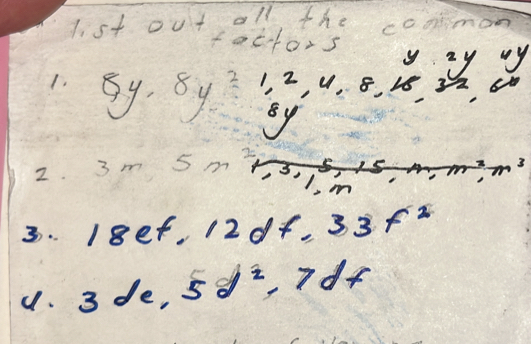 list out all the common
factors
y 2y 4y
1. 8y, 8y² 1, 2, 4, 8, 16, 32, 64
8y
2. 3m 5m² 1, 3, 5, 15, m, m², m³
1, m
3. 18ef, 12df, 33f²
4. 3de, 5d², 7df